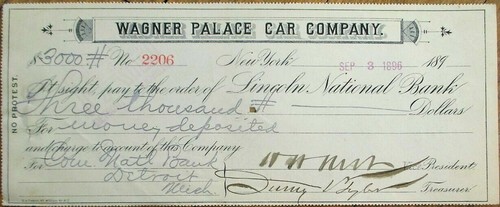 WAGNER PALACE CAR COMPANY.
$3000 # No. 2206 New York SEP 3 1896 189
At sight, pay to the order of Lincoln National Bank
Three thousand # Dollars
For money deposited
and charge to account of this Company
For Com Natl Bank President
Detroit
Mich Treasurer
NO PROTEST.